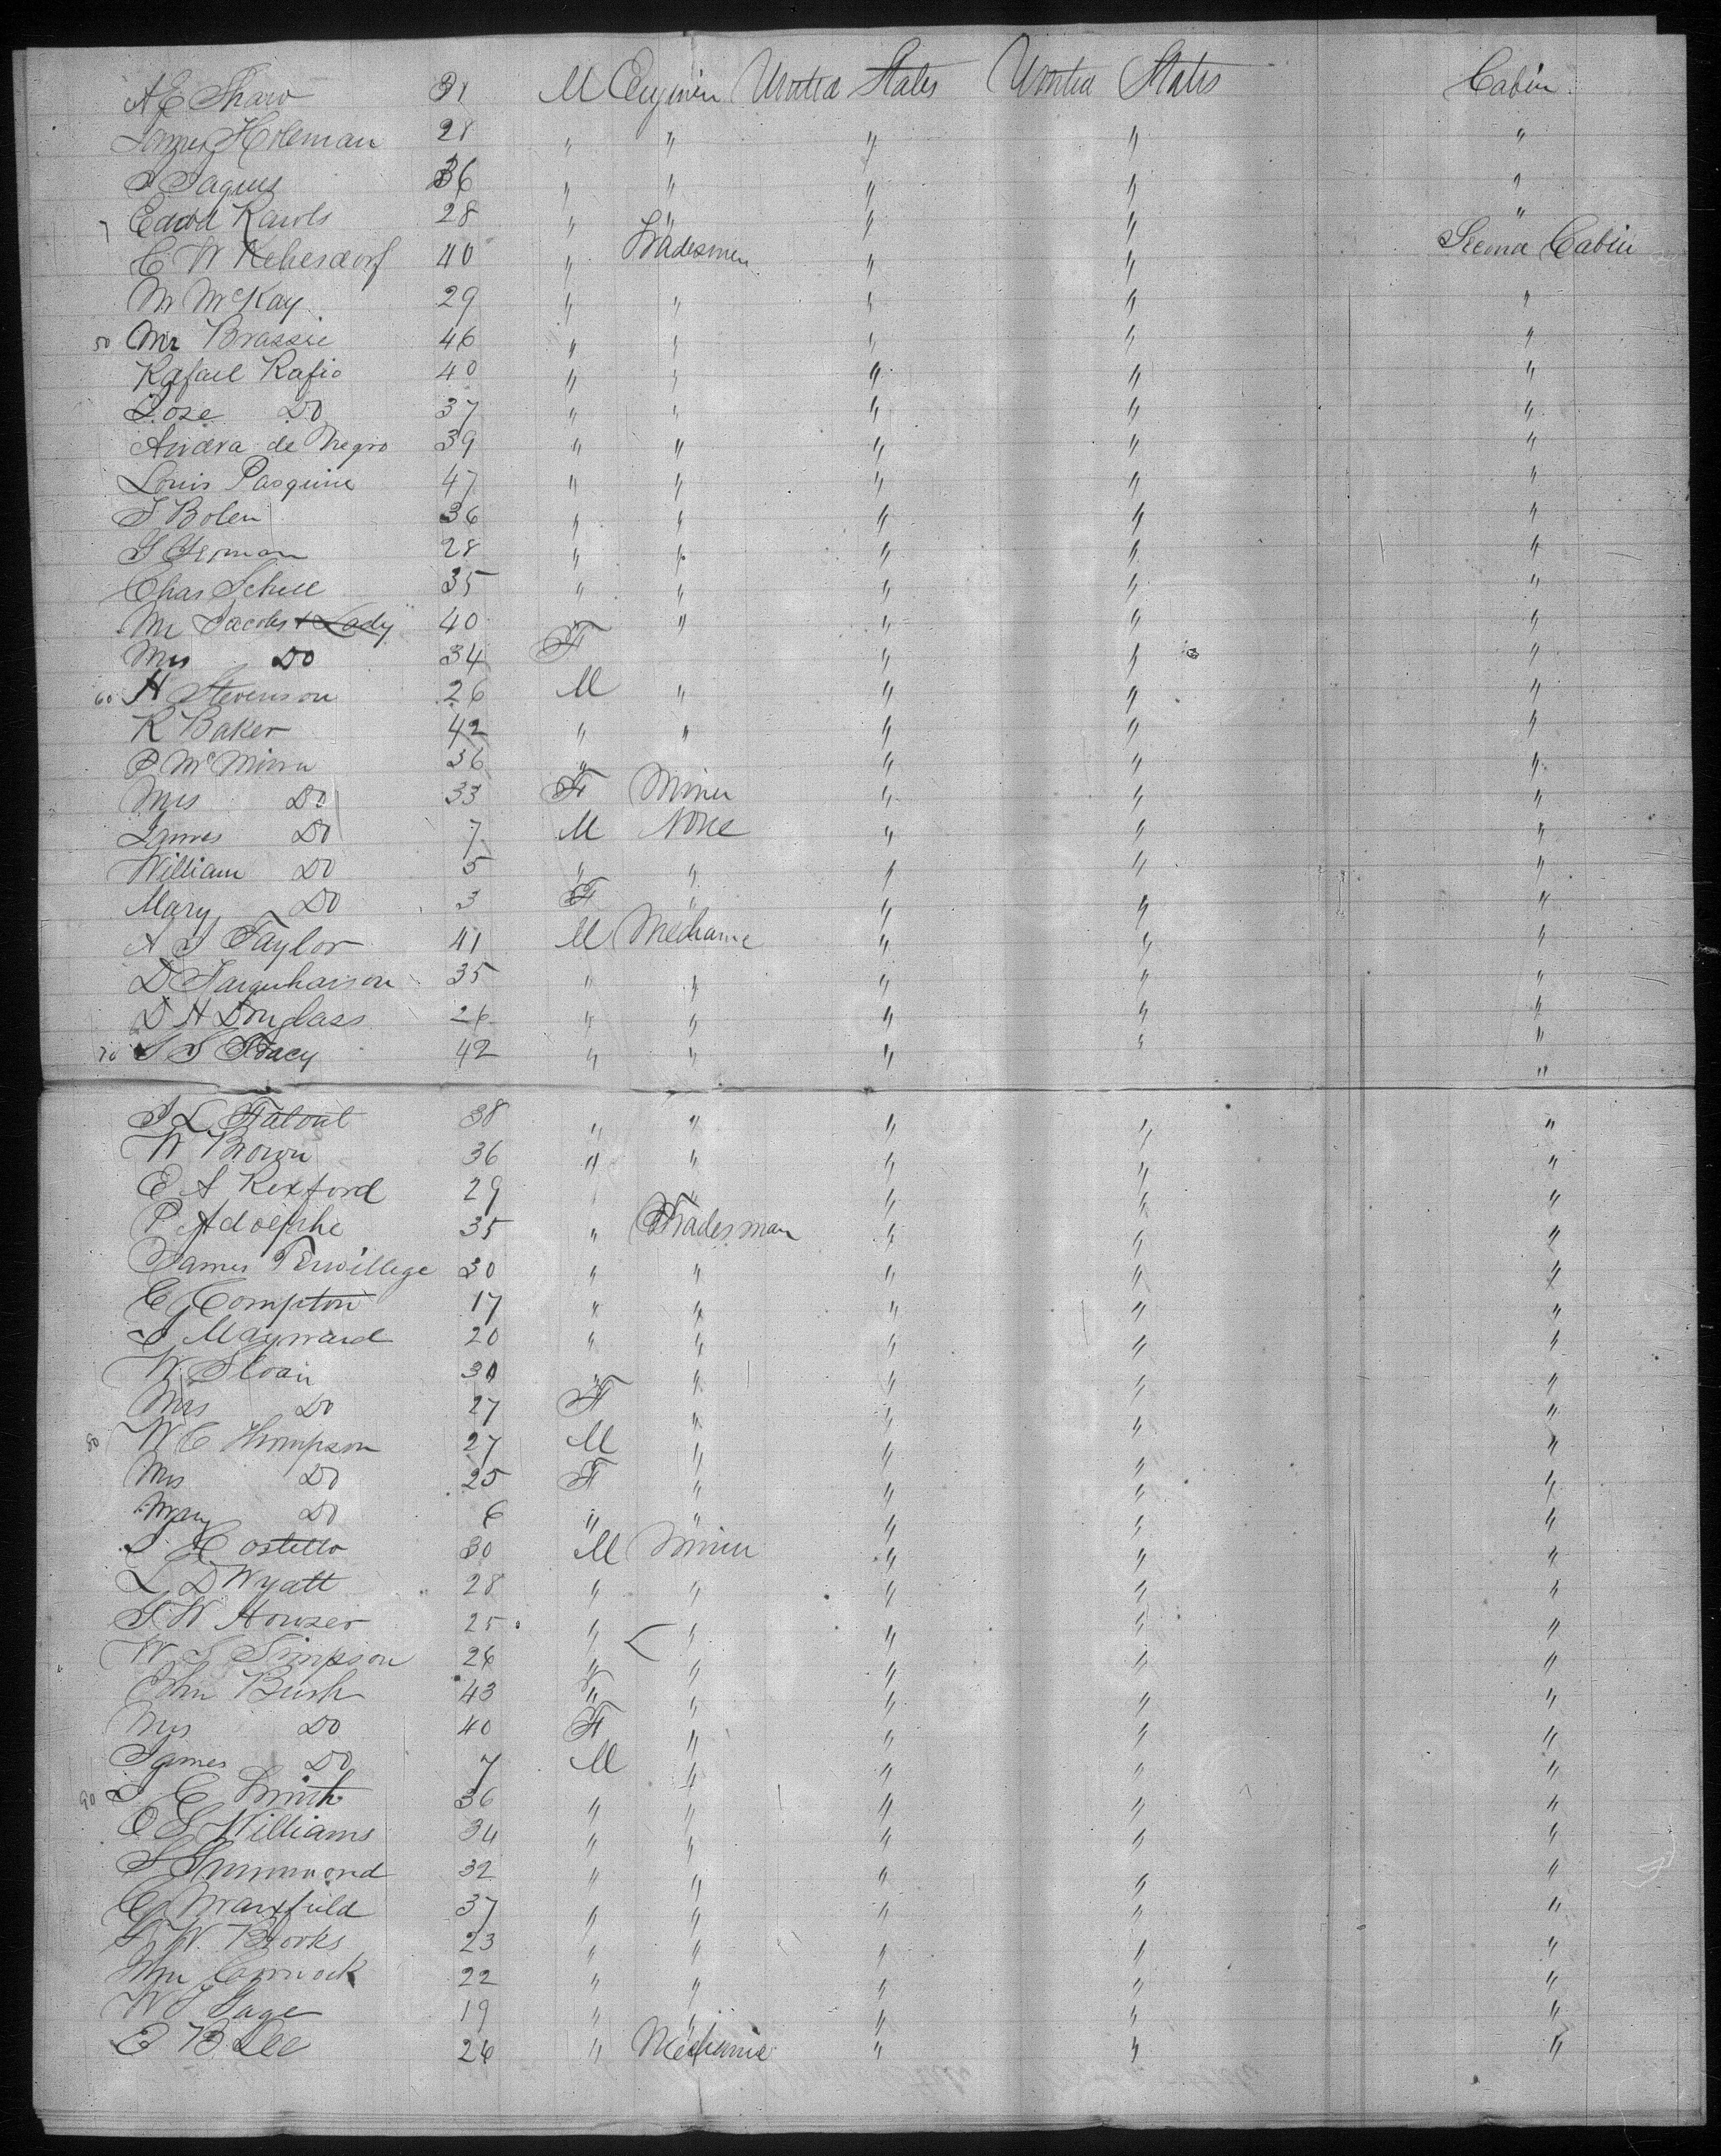 A E Shaw 31 M Engineer United States United States Cabin
James Holeman 28 " " " " "
J Jaques 36 " " " " "
Edwd Rawls 28 " " " " "
C W 40 " Tradesmen " " Second Cabin
M McKay 29 " " " " "
50 Mr Brassie 46 " " " " "
Rafael Rafio 40 " " " " "
Jose Do 37 " " " " "
Andera de Negro 39 " " " " "
Louis Pasquine 47 " " " " "
J Bolen 36 " " " " "
28 " " " " "
Chas Schell 35 " " " " "
Mr Jacobs & Lady 40 " " " " "
Mrs Do 34 F " " "
60 H Stevenson 26 M " " " "
R Baker 42 " " " " "
P McMinn 36 " " " "
Mrs Do 33 F Miner " " "
James Do 7 M None " " "
William Do 5 " " " " "
Mary Do 3 F " " " "
A S Taylor 41 M Mechanic " " "
D Farquharson 35 " " " " "
D H Douglass 26 " " " " "
70 S S Tracy 42 " " " " "
"
J L Tatout 38 " " " " "
W Brown 36 " " " " "
E A Rexford 29 " " " " "
P Adolphe 35 " Tradesman " " "
James Terwillege 30 " " " " "
C Compton 17 " " " " "
S Maynard 20 " " " " "
W Sloan 30 " " " " "
Mrs Do 27 F " " " "
80 W C Thompson 27 M " " " "
Mrs Do 25 F " " " "
Mary Do 6 " " " " "
J Costello 30 M Miner " " "
L D Wyatt 28 " " " " "
F W Howser 25 " " " " "
W S Simpson 26 " " " " "
John Bush 43 " " " " "
Mrs Do 40 F " " " "
James Do 7 M " " " "
90 J C Smith 36 " " " " "
O S Williams 34 " " " " "
32 " " " " "
C Maxfield 37 " " " " "
F W Brooks 23 " " " " "
22 " " " " "
W J Gage 19 " " " " "
E B Lee 26 " Mechanic " " "